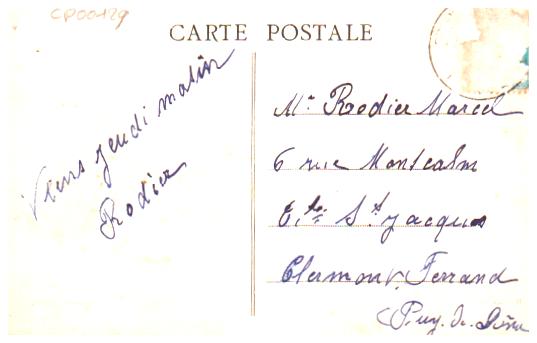 CP00129
CARTE POSTALE
Viens jeudi matin
Rodier
Mr Rodier Marcel
6 rue Montcalm
Cité St Jacques
Clermont-Ferrand
(Puy-de-Dôme